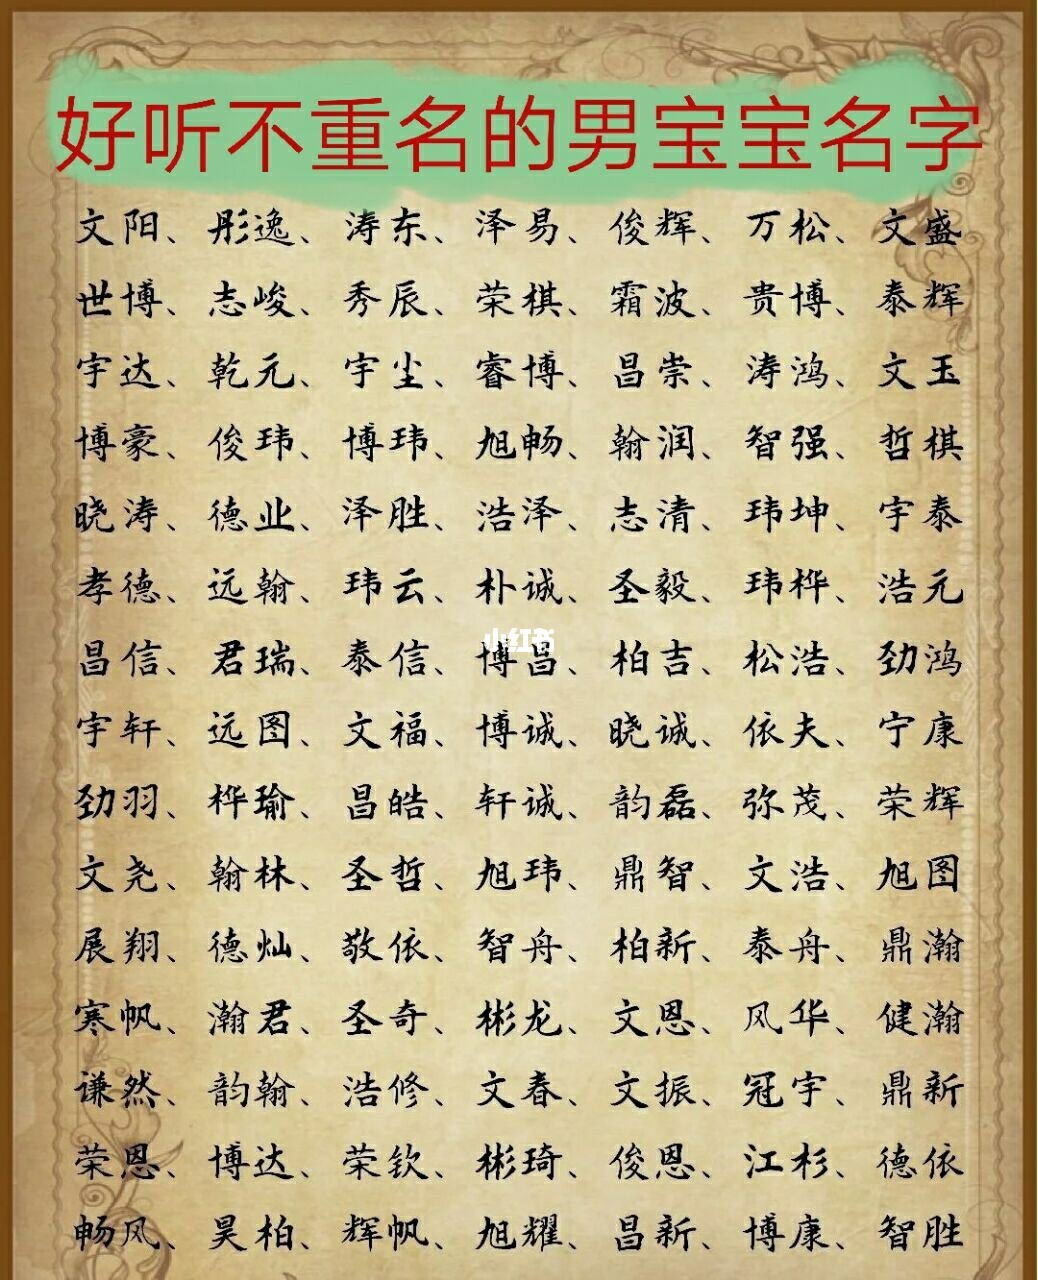 好听不重名的男宝宝名字
文阳、彤逸、涛东、泽易、俊辉、万松、文盛
世博、志峻、秀辰、荣棋、霜波、贵博、泰辉
宇达、乾元、宇尘、睿博、昌崇、涛鸿、文玉
博豪、俊玮、博玮、旭畅、翰润、智强、哲棋
晓涛、德业、泽胜、浩泽、志清、玮坤、宇泰
孝德、远翰、玮云、朴诚、圣毅、玮桦、浩元
昌信、君瑞、泰信、博昌、柏吉、松浩、劲鸿
小红书
宇轩、远图、文福、博诚、晓诚、依夫、宁康
劲羽、桦瑜、昌皓、轩诚、韵磊、弥茂、荣辉
文尧、翰林、圣哲、旭玮、鼎智、文浩、旭图
展翔、德灿、敬依、智舟、柏新、泰舟、鼎瀚
寒帆、瀚君、圣奇、彬龙、文恩、风华、健瀚
谦然、韵翰、浩修、文春、文振、冠宇、鼎新
荣恩、博达、荣钦、彬琦、俊恩、江杉、德依
畅风、昊柏、辉帆、旭耀、昌新、博康、智胜